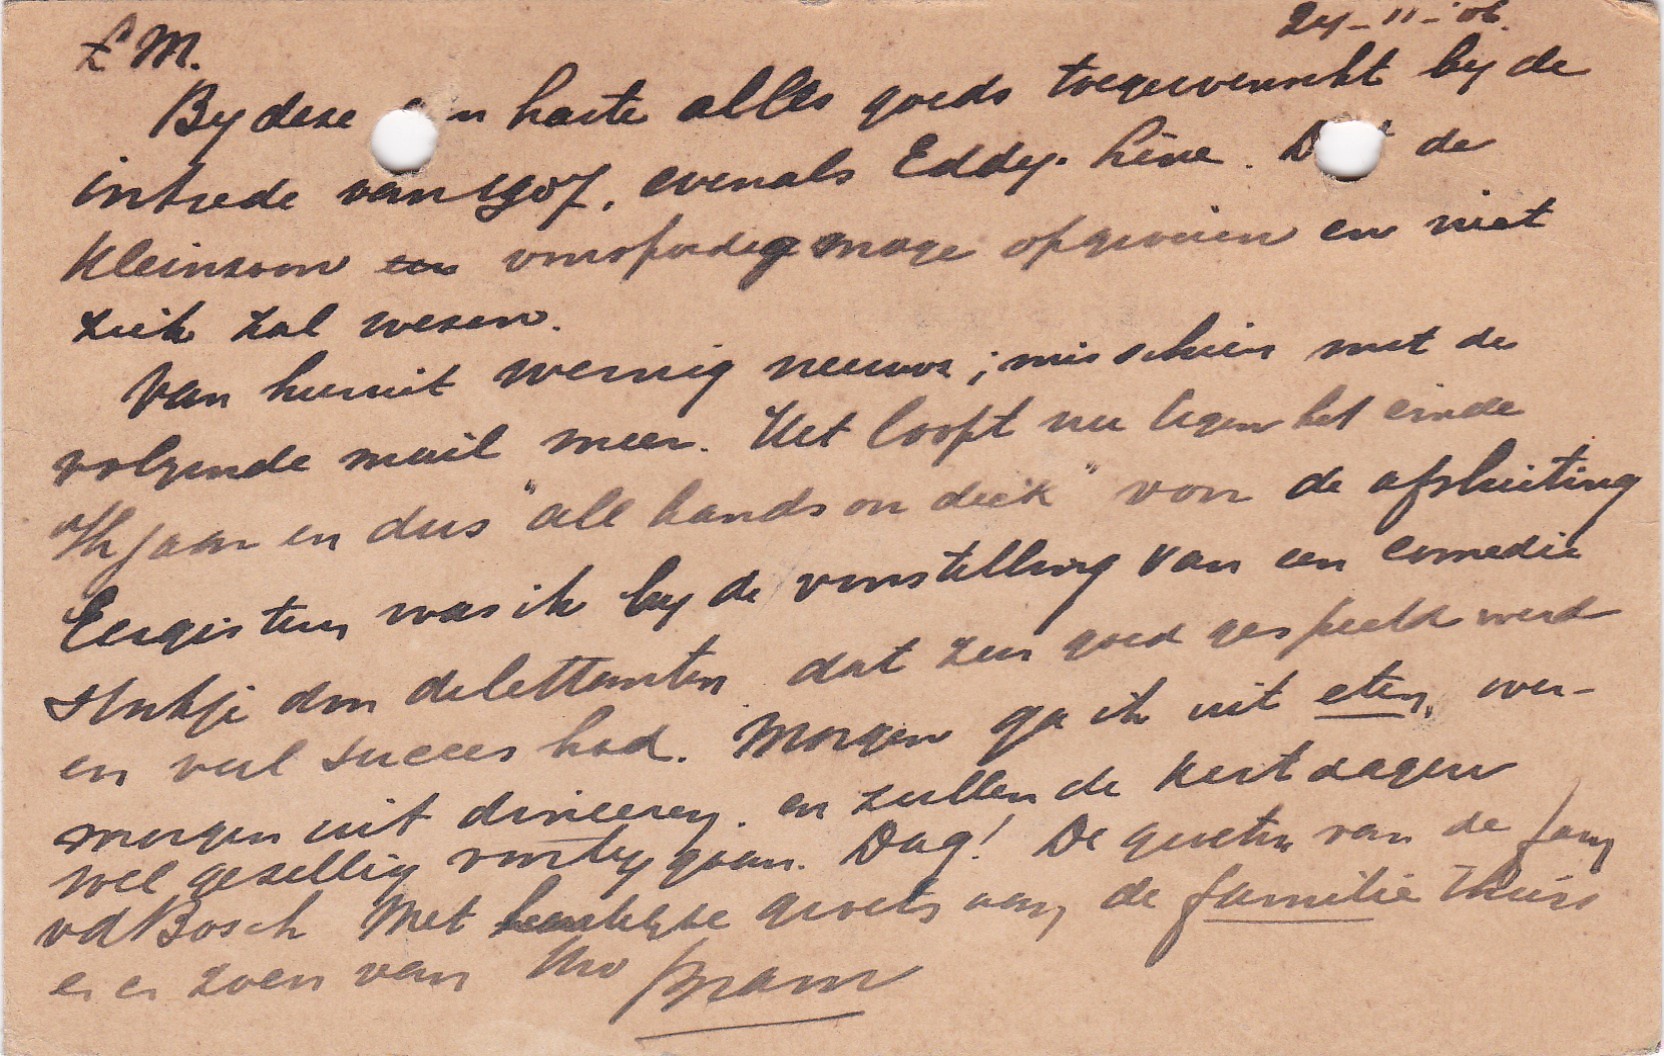 24-11-'06.
L M.
By deze van harte alles goeds toegewenscht by de
intrede van 1907, evenals Eddy. Line. Dat de
Kleinzoon voorspoedig moge opgroeien en niet
ziek zal wesen.
Van hieruit weinig nieuws; misschien met de
volgende mail meer. Het loopt nu tegen het einde
Vh jaar en dus "all hands on deck" voor de afsluiting
Eergisteren was ik by de voorstelling van een comedie
stukje door dilettanten dat zeer goed gespeeld werd
en veel succes had. Morgen ga ik uit eten, over-
morgen uit dineeren. en zullen de Kerstdagen
wel gezellig voorby gaan. Dag! De groeten van de fam
vd Bosch Met hartelyke groets aan de familie thuis
e e zoen van Uw Bram